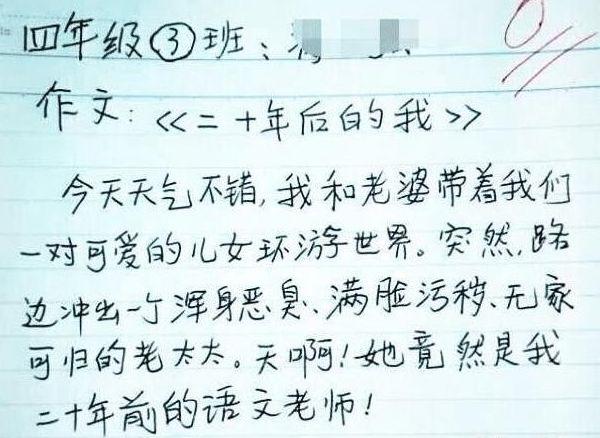 四年级③班：
作文：《二十年后的我》
今天天气不错，我和老婆带着我们
一对可爱的儿女环游世界。突然，路
边冲出一个浑身恶臭、满脸污秽、无家
可归的老太太。天啊！她竟然是我
二十年前的语文老师！
0